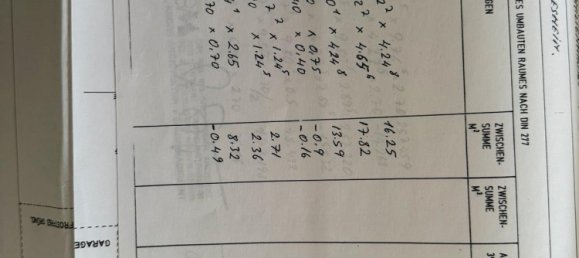 ES UMBAUTEN RAUMES NACH DIN 277
GEN
ZWISCHEN-
SUMME
M²
ZWISCHEN-
SUMME
M²
2² × 4.24⁸ 16.25
2² × 4.65⁶ 17.82
0⁴ × 4.24⁸ 13.59
0 × 0.75 -0.9
10 × 0.40 -0.16
7² × 1.24⁵ 2.71
0 × 1.24⁵ 2.36
4¹ × 2.65 8.32
70 × 0.70 -0.49
GARAGE